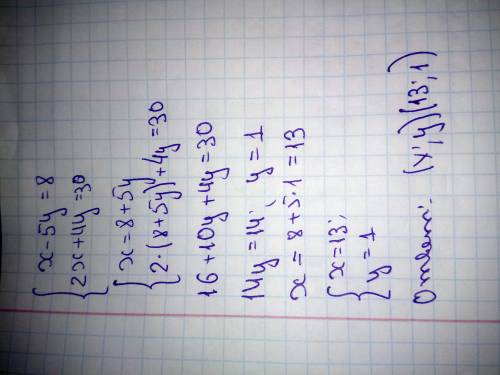 { x - 5y = 8
{ 2x + 4y = 30
{ x = 8 + 5y
{ 2·(8 + 5y) + 4y = 30
16 + 10y + 4y = 30
14y = 14; y = 1
x = 8 + 5·1 = 13
{ x = 13;
{ y = 1
Ответ: (x; y) (13; 1)